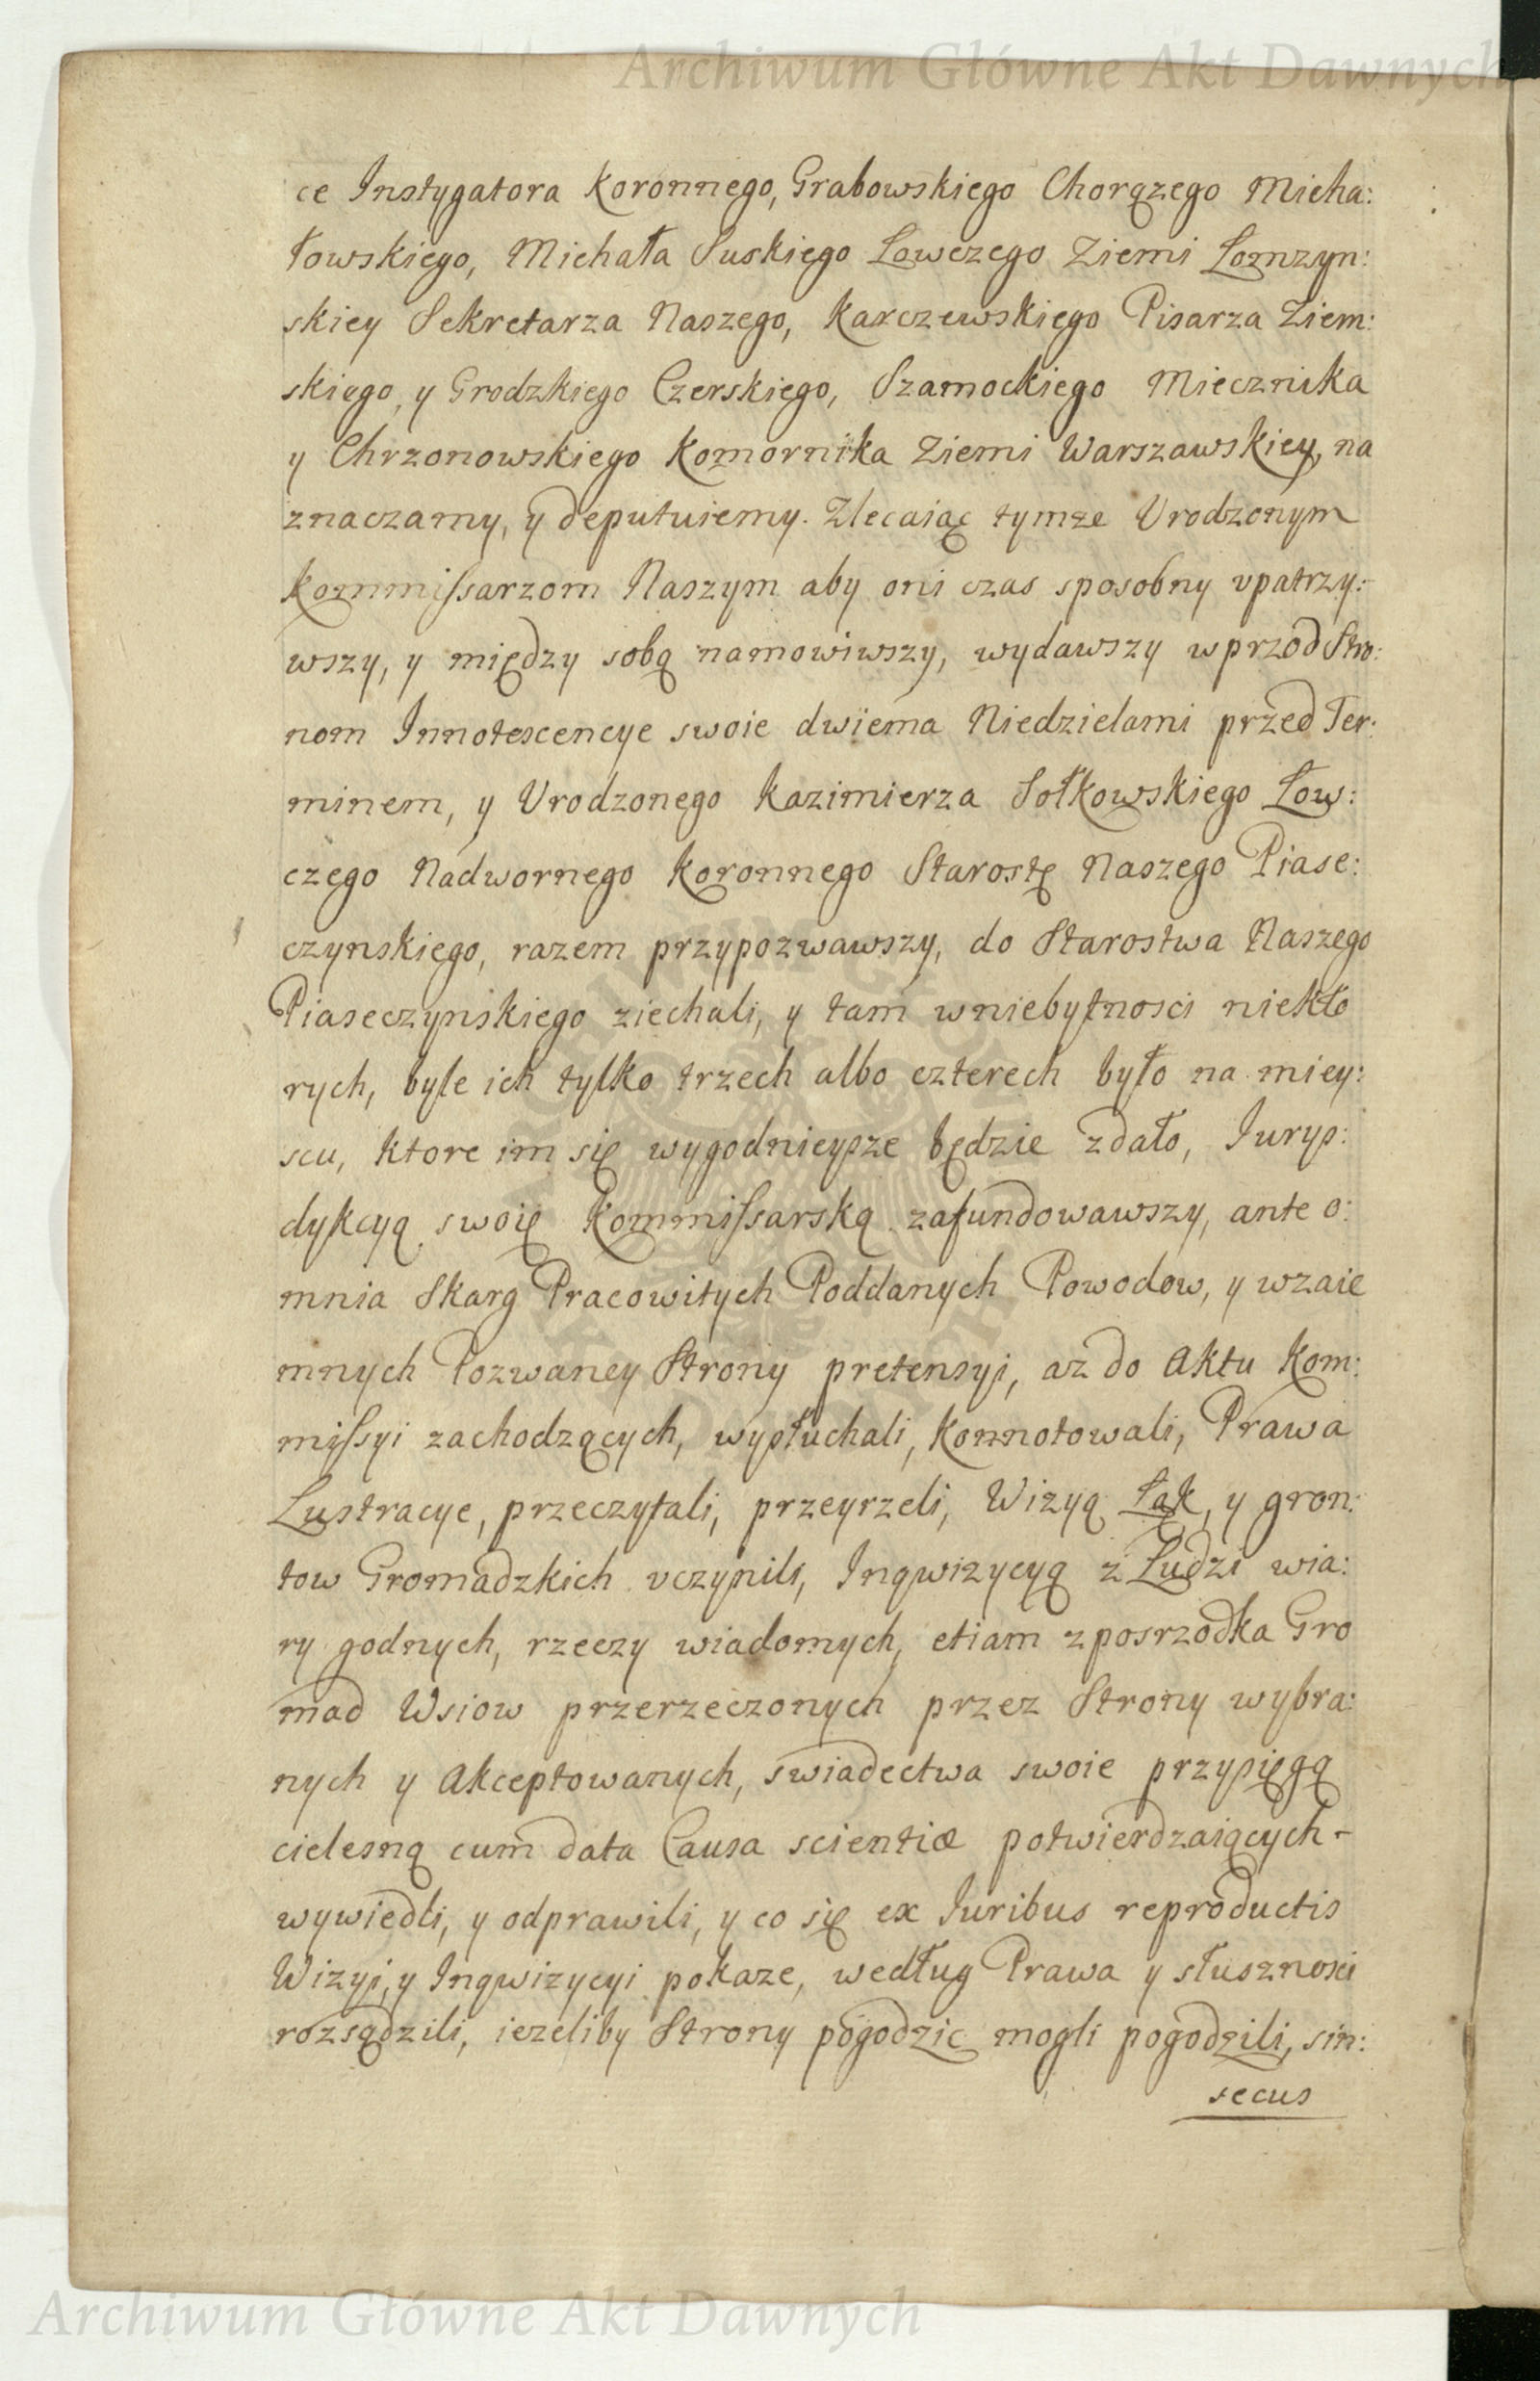 Archiwum Główne Akt Dawnych
ce Instygatora Koronnego, Grabowskiego Chorązego Micha:
łowskiego, Michała Suskiego Łowczego Ziemi Łomzyn:
skiey Sekretarza Naszego, Karczewskiego Pisarza Ziem:
skiego, y Grodzkiego Czerskiego, Szamockiego Miecznika
y Chrzonowskiego Komornika Ziemi Warszawskiey, na
znaczamy, y deputuiemy. Zlecaiąc tymze Vrodzonym
Kommissarzom Naszym aby oni czas sposobny vpatrzy:
wszy, y między sobą namowiwszy, wydawszy wprzod Stro:
nom Innotescencye swoie dwiema Niedzielami przed Ter:
minem, y Vrodzonego Kazimierza Sołkowskiego Łow:
czego Nadwornego Koronnego Starostę Naszego Piase:
czynskiego, razem przypozwawszy, do Starostwa Naszego
Piaseczynskiego ziechali, y tam wniebytnosci niekto
rych, byle ich tylko trzech albo czterech było na miey:
scu, ktore im się wygodnieysze będzie zdało, Jurys:
dykcyą swoię Kommissarską zafundowawszy, ante o:
mnia Skarg Pracowitych Poddanych Powodow, y wzaie
mnych Pozwaney Strony pretensyi, az do Aktu Kom:
missyi zachodzących, wysłuchali, konnotowali, Prawa
Lustracye, przeczytali, przeyrzeli, Wizyą Łąk, y gron:
tow Gromadzkich vczynili, Inqwizycyą z Ludzi wia:
ry godnych, rzeczy wiadomych, etiam zposrzodka Gro
mad Wsiow przerzeczonych przez Strony wybra:
nych y Akceptowanych, swiadectwa swoie przysięgą
cielesną cum data Causa scientiæ potwierdzaiących-
wywiedli, y odprawili, y co się ex Juribus reproductis
Wizyi, y Inqwizycyi pokaze, według Prawa y słusznosci
rozsądzili, iezeliby Strony pogodzic mogli pogodzili, sin:
secus
Archiwum Główne Akt Dawnych